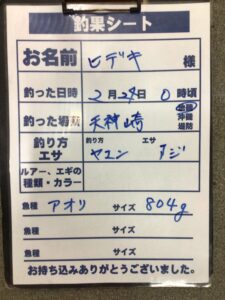 釣果シート
お名前 ヒデキ 様
釣った日時 2月24日 0時頃
釣った場所 天神崎 地磯 沖磯 堤防
釣り方 エサ 釣り方 ヤエン エサ アジ
ルアー、エギの種類・カラー
魚種 アオリ サイズ 804g
魚種 サイズ
魚種 サイズ
お持ち込みありがとうございました。